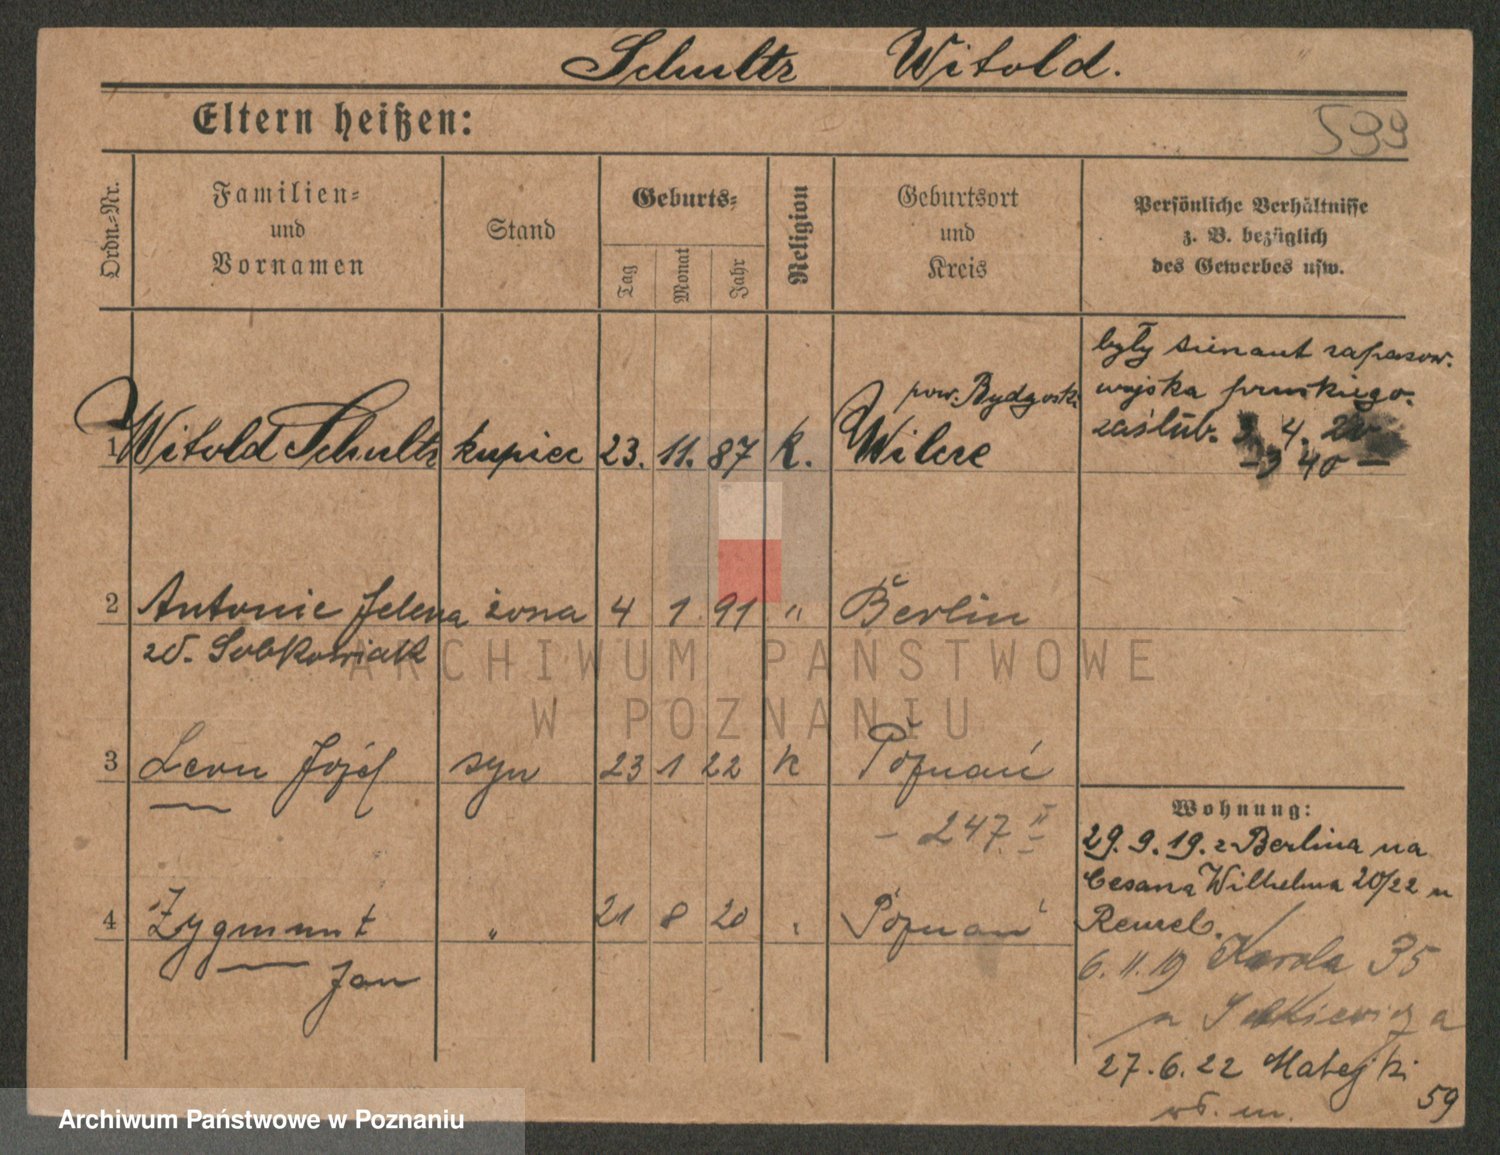 Schultz Witold.
Eltern heißen:
599
Ordn.-Nr.
Familien-
und
Vornamen
Stand
Geburts-
Tag
Monat
Jahr
Religion
Geburtsort
und
Kreis
Persönliche Verhältnisse
z. B. bezüglich
des Gewerbes usw.
były zapasow.
wojska pruskiego.
zaślub. 4. 20
3 40 —
pow. Bydgoski
1 Witold Schultz kupiec 23. 11. 87 K.
2 Antonie Helena żona 4 1 91 " Berlin
zd. Sobkowiak
3 Leon Józef syn 23 1 22 k Poznań
- 247. II
4 Zygmunt " 21 8 20 Poznań
Jan
Wohnung:
29. 9. 19. z Berlina na
Cesarza Wilhelma 20/22 u
6. 11. 19 Karola 35
u
27. 6. 22 Matejki
59
ARCHIWUM PAŃSTWOWE
W POZNANIU
Archiwum Państwowe w Poznaniu